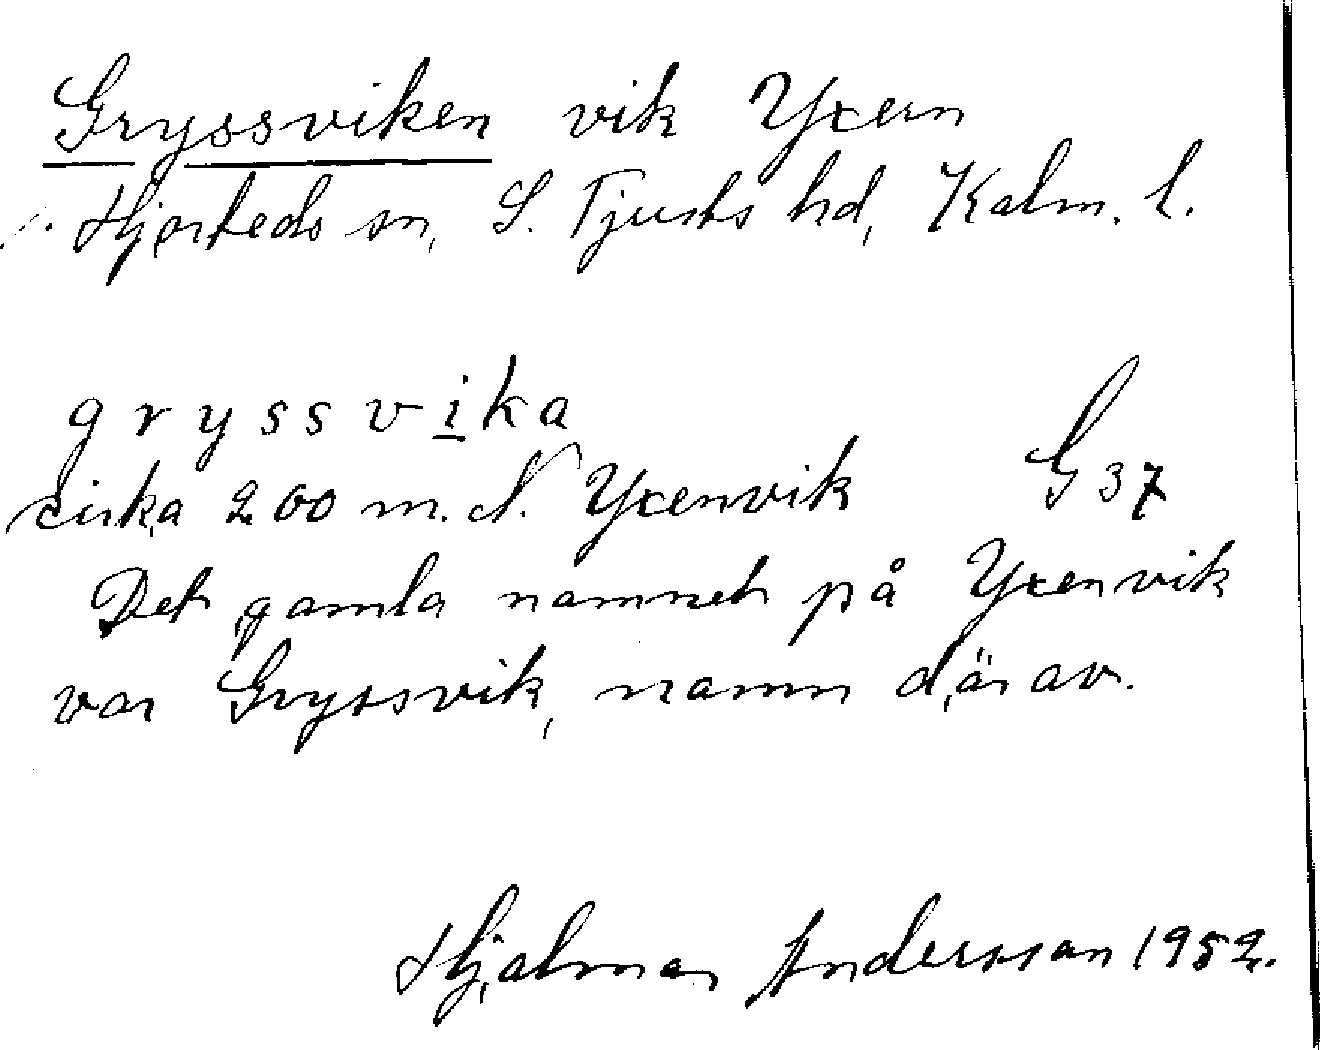 Gryssviken vik Yxern
Hjorteds sn, S. Tjusts hd, Kalm. l.
gryssvika
cirka 200 m. N. Yxenvik G 37
Det gamla namnet på Yxenvik
var Gryssvik, namn därav.
Hjalmar Andersson 1952.